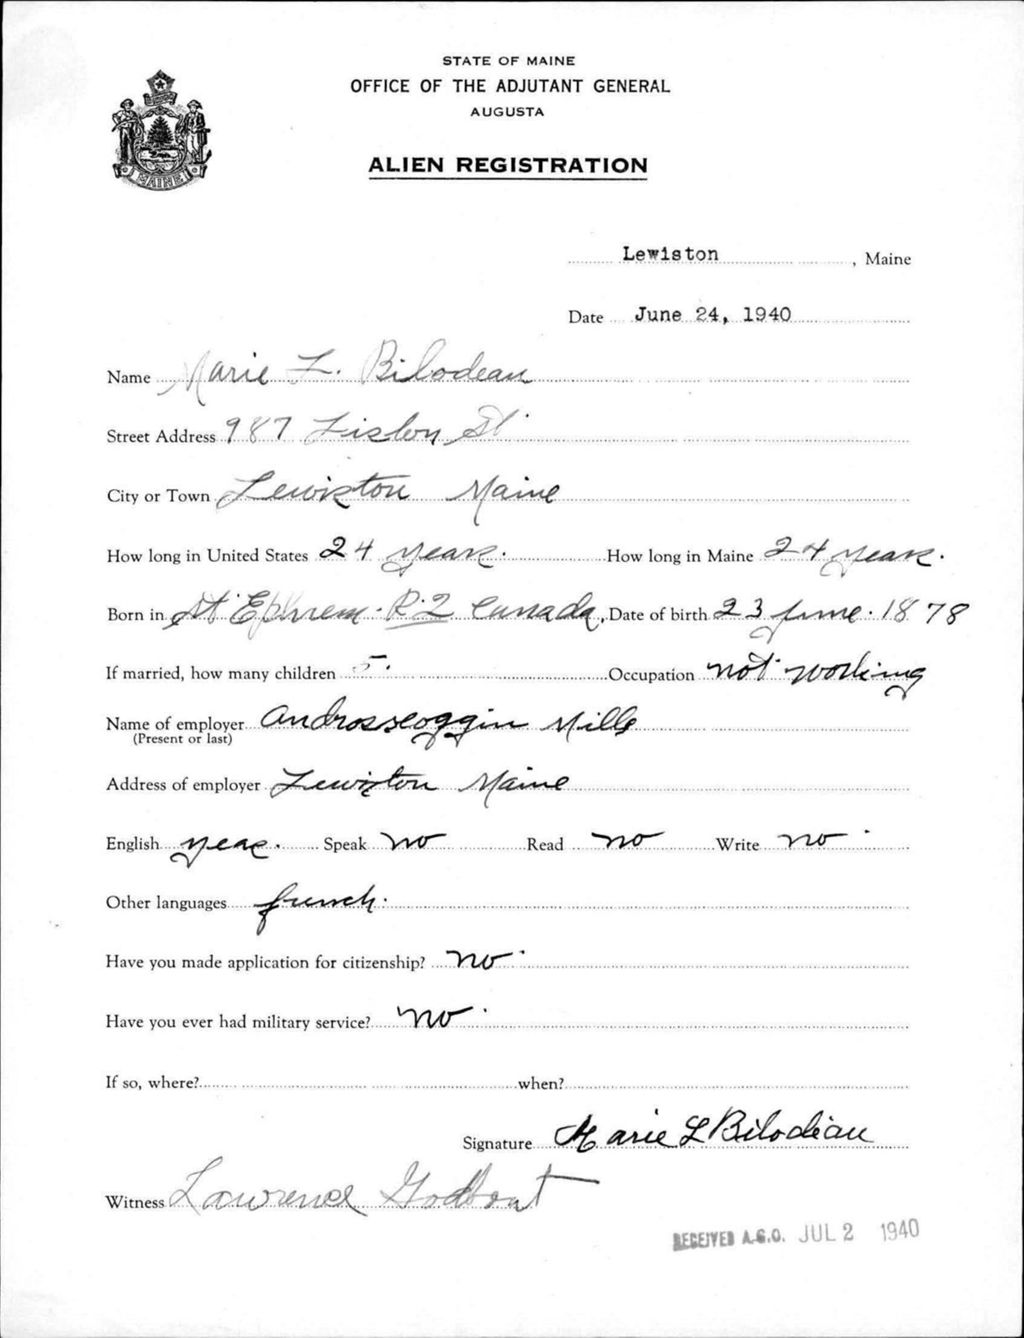 STATE OF MAINE
OFFICE OF THE ADJUTANT GENERAL
AUGUSTA
ALIEN REGISTRATION
MAINE
Lewiston, Maine
Date June 24, 1940
Name Marie L. Bilodeau
Street Address 987 Lisbon St
City or Town Lewiston Maine
How long in United States 24 years. How long in Maine 24 years.
Born in St Ephrem. P.Q Canada, Date of birth 23 June. 1878
If married, how many children 5. Occupation not working
Name of employer Androsscoggin Mills
(Present or last)
Address of employer Lewiston Maine
English Speak no Read no Write no.
Other languages french.
Have you made application for citizenship? no.
Have you ever had military service? no.
If so, where? when?
Signature Marie L Bilodeau
Witness Lawrence Godbout
RECEIVED A.G.O. JUL 2 1940